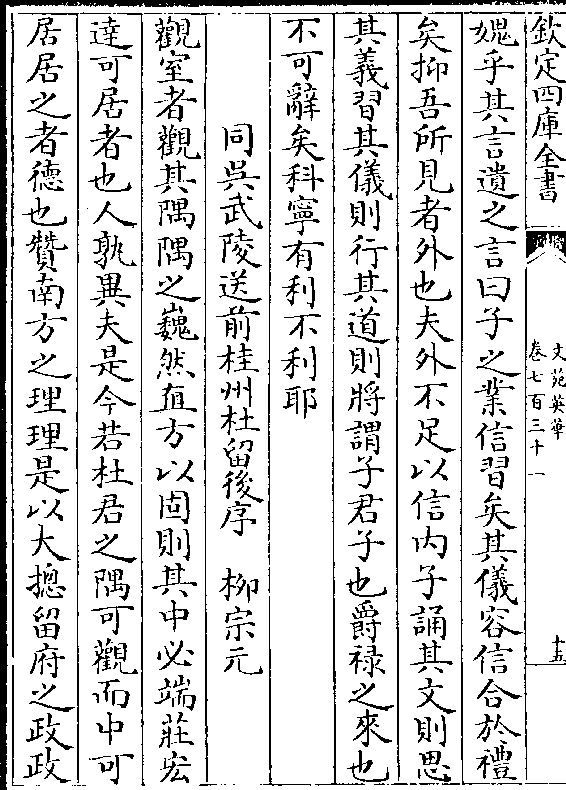 欽定四庫全書
文苑英華
卷七百三十一
十五
媿乎其言遺之言曰子之業信習矣其儀容信合於禮
矣抑吾所見者外也夫外不足以信内子誦其文則思
其義習其儀則行其道則將謂子君子也爵禄之來也
不可辭矣科寧有利不利耶
同吳武陵送前桂州杜留後序　柳宗元
觀室者觀其隅隅之巍然直方以固則其中必端莊宏
達可居者也人孰異夫是今若杜君之隅可觀而中可
居居之者德也贊南方之理理是以大摠留府之政政